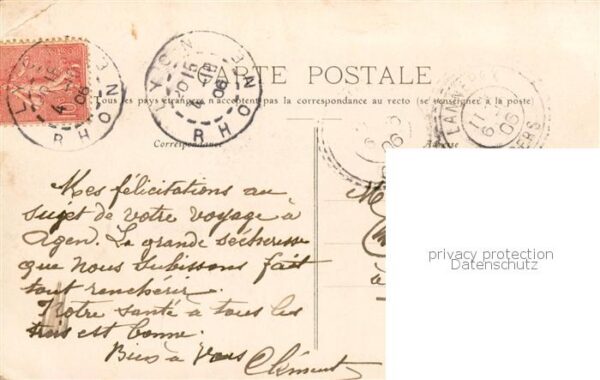 LYON
RHONE
15
4
06
LYON
RHONE
15
4
06
CARTE POSTALE
Tous les pays étrangers n'acceptent pas la correspondance au recto (se renseigner à la poste)
LANNE
11
6
06
GERS
Correspondance
Adresse
Mes félicitations au
sujet de votre voyage à
Agen. La grande sécheresse
que nous subissons fait
tout renchérir.
Notre santé à tous les
trois est bonne.
Bien à Vous
Clément
M
à
privacy protection
Datenschutz